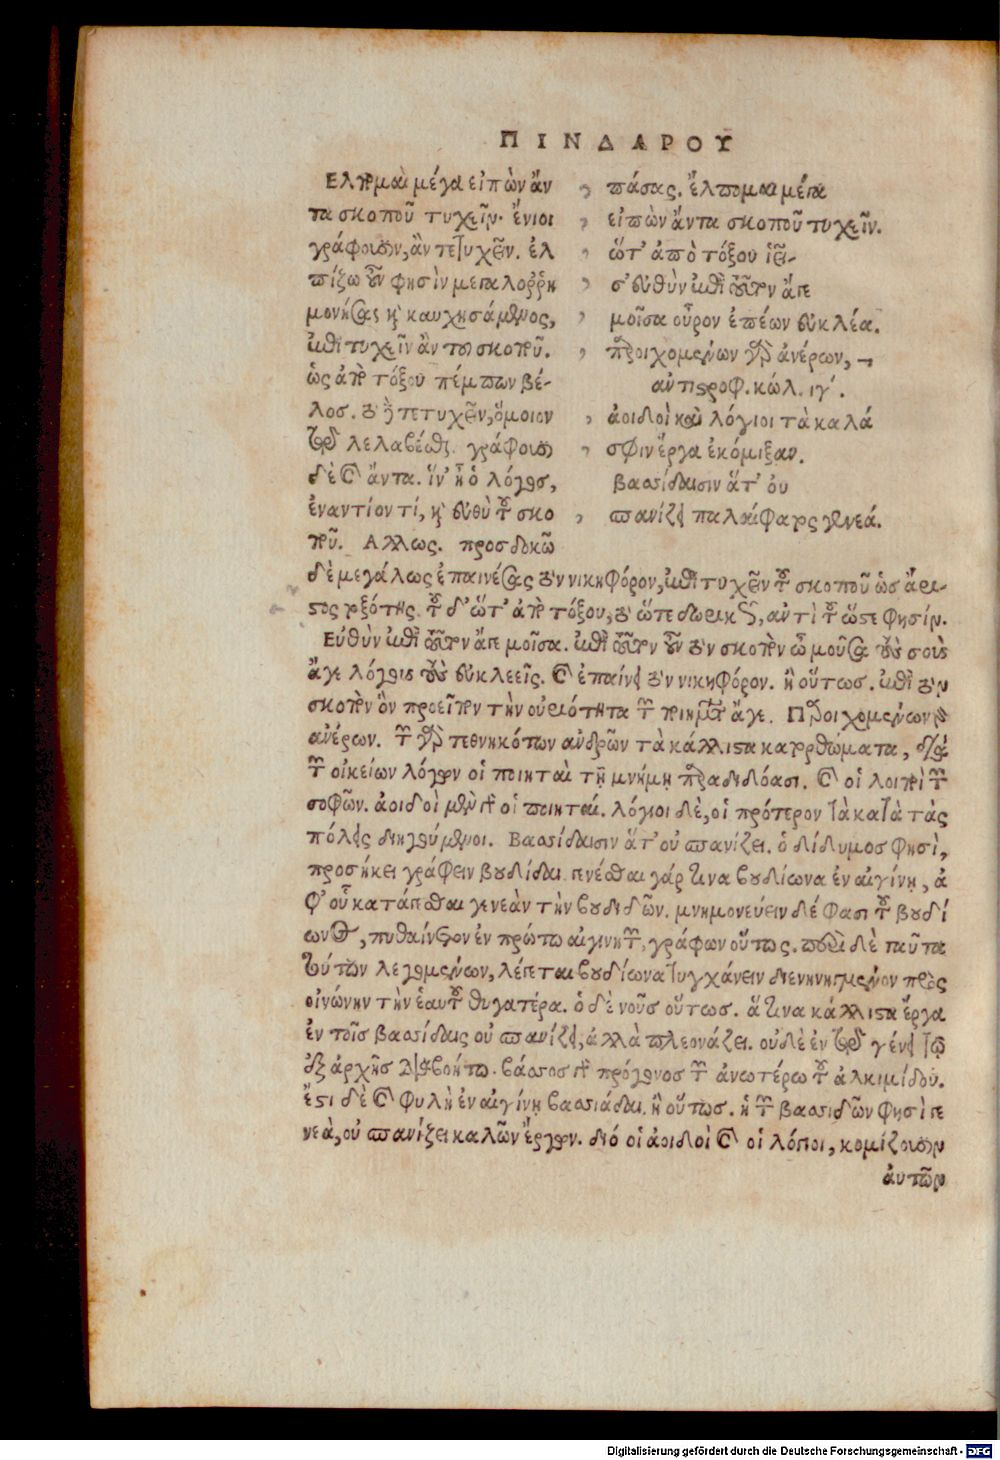 ΠΙΝΔΑΡΟΥ
Ελπομαι μέγα εἰπὼν ἄν
τα σκοποῦ τυχεῖν. ἔνιοι
γράφουσιν, ἂν τετυχεῖν. ἐλ
πίζω οὖν φησὶν μεγαλορρη
μονήσας καὶ καυχησάμενος,
κατατυχεῖν ἂν του σκοποῦ.
ὡς ἀπὸ τόξου πέμπων βέ-
λος. τὸ δὲ τετυχεῖν, ὅμοιον
τῷ λελαβέσθαι. γράφουσι
δὲ καὶ ἄντα. ἵν' ᾖ ὁ λόγος,
ἐναντίον τί, καὶ εὐθὺ τοῦ σκο
ποῦ. Αλλως. προσδοκῶ
πάσας. ἔλπομαι μέγα
εἰπὼν ἄντα σκοποῦ τυχεῖν.
ὥτ' ἀπὸ τόξου ἱεὶ-
σ' εὐθὺν ἐπὶ τοῦτον ἄγε
μοῖσα οὖρον ἐπέων εὐκλέα.
παροιχομένων γὰρ ἀνέρων,
αντιστροφ. κώλ. ιγ΄.
ἀοιδοὶ καὶ λόγιοι τὰ καλά
σφιν ἔργα ἐκόμιξαν.
βασσίδαισιν ἅτ' ὀυ
σπανίζει παλαίφατος γενεά.
δὲ μεγάλως ἐπαινέσας τὸν νικηφόρον, ἐπιτυχεῖν τοῦ σκοποῦ ὡς ἄρι-
στος τοξότης. τὸ δ' ὥτ' ἀπὸ τόξου, τὸ ὥτε δωρικῶς, αντὶ τοῦ ὥστε φησίν.
Εὐθὺν ἐπὶ τοῦτον ἄγε μοῖσα. ἐπὶ τοῦτον οὖν τὸν σκοπὸν ὦ μοῦσα τοὺς σοὺς
ἄγε λόγους τοὺς εὐκλεεῖς. καὶ ἐπαίνει τὸν νικηφόρον. ἢ οὕτως. ἐπὶ τὸν
σκοπὸν ὃν προεῖπον τὴν οὐριότητα τῶν ποιημάτων ἄγε. Παροιχομένων γὰρ
ανέρων. τῶν γὰρ τεθνηκότων ανδρῶν τὰ κάλλιστα κατορθώματα, διὰ
τῶν οἰκείων λόγων οἱ ποιηταὶ τῇ μνήμῃ παραδιδόασι. καὶ οἱ λοιποὶ τῶν
σοφῶν. ἀοιδοὶ μὲν γὰρ οἱ ποιηταί. λόγιοι δὲ, οἱ πρότερον τὰ κατὰ τὰς
πόλεις διηγούμενοι. Βασσίδαισιν ἅτ' οὐ σπανίζει. ὁ δίδυμος φησὶ,
προσήκει γράφειν βουδίδαι. γενέσθαι γάρ τινα βουδίωνα ἐν αἰγίνῃ, ἀ
φ' οὗ κατάγεσθαι γενεὰν τὴν βουδιδῶν. μνημονεύειν δέ φασι τοῦ βουδί
ωνος, πυθαίνετον ἐν πρώτῳ αἰγινητῶν, γράφων οὕτως. περὶ δὲ ταῦτα
τούτων λεγομένων, λέγεται βουδίωνα τυγχάνειν διενηνεγμένον πρὸς
οἰνώνην τὴν ἑαυτοῦ θυγατέρα. ὁ δὲ νοῦς οὕτως. ἅτινα κάλλιστα ἔργα
ἐν τοῖς βασσίδαις οὐ σπανίζει, ἀλλὰ πλεονάζει. οὐδὲ ἐν τῷ γένει τῷ
ἐξ ἀρχῆς διαβοήτῳ. βάσσος γὰρ πρόγονος τῶν ἀνωτέρω τοῦ ἀλκιμίδου.
ἔστι δὲ καὶ φυλὴ ἐν αἰγίνῃ βασσιάδαι. ἢ οὕτως. ἡ τῶν βασσιδῶν φησὶ γε
νεὰ, οὐ σπανίζει καλῶν ἔργων. διό οἱ ἀοιδοὶ καὶ οἱ λόγιοι, κομίζουσιν
ἀυτῶν
Digitalisierung gefördert durch die Deutsche Forschungsgemeinschaft - DFG